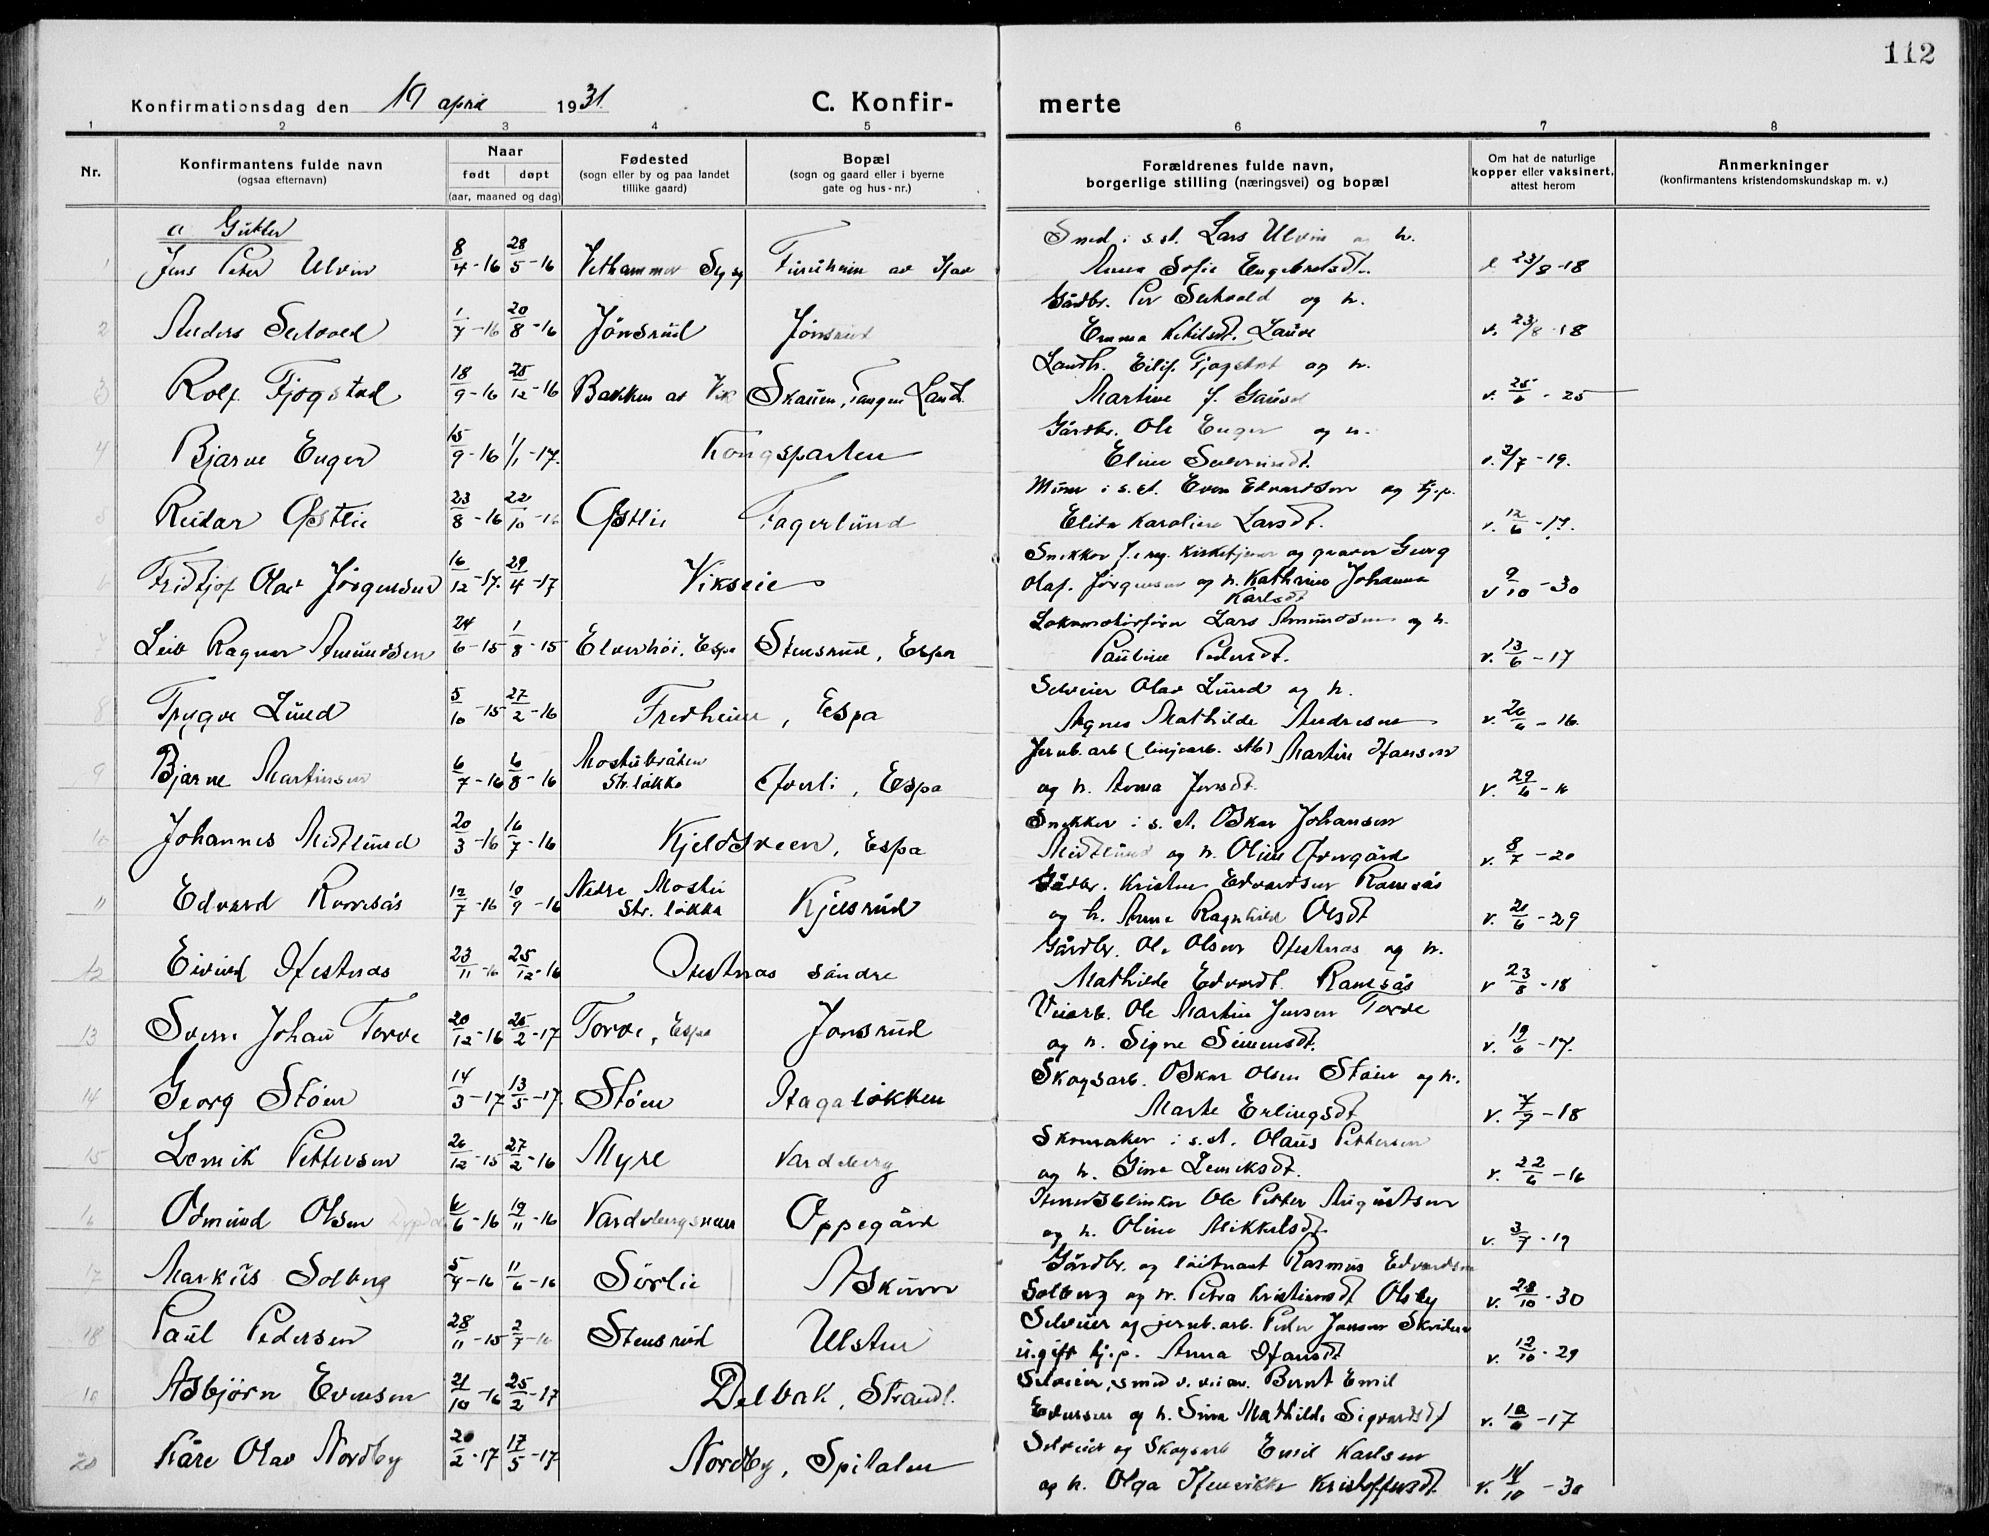 112
Konfirmationsdag den 19 april 1931. C. Konfir- merte
1 2 3 4 5 6 7 8
Nr. Konfirmantens fulde navn (ogsaa efternavn) Naar født døpt (aar, maaned og dag) Fødested (sogn eller by og paa landet tillike gaard) Bopæl (sogn og gaard eller i byerne gate og hus-nr.) Forældrenes fulde navn, borgerlige stilling (næringsvei) og bopæl Om hat de naturlige kopper eller vaksinert, attest herom Anmerkninger (konfirmantens kristendomskundskap m. v.)
a Gutter
Smed i s.st. Lars Ulvin og h.
1 Jens Peter Ulvin 8/4-16 28/5-16 Furuheim av Anna Sofie Engebretsdt. 23/8-18
Gårdbr. Per og h.
2 Anders 1/7-16 20/8-16 Jønsrud Jønsrud Emma Ketilsdt. v. 23/8-18
Landh. Eilif Fjogstad og h.
3 Rolf Fjogstad 18/9-16 25/12-16 Bakken av Vik Skauen, Tangen Landh. Martine f. v. 25/6-25
Gårdbr. Ole Enger og h.
4 Bjarne Enger 15/9-16 1/1-17. Kongsparten Eline v. 2/7-19.
Murer i s.st. Even Edvardsen og hj.p.
5 Reidar Østlie 23/8-16 22/10-16 Østlie Fagerlund Elida Karoline Larsdt. v. 12/6-17.
Snekker f. og kirketjener og graver Georg
6 Fridtjof Olav Jørgensen 16/12-17. 29/4-17 Vikseie Olaf Jørgensen og h. Kathrine Johanna Karlsdt v 9/10-30
Lokomotivfører Lars Amundsen og h.
7 Leiv Ragnar Amundsen 24/6-15 1/8-15 Elverhøi, Espa Stensrud, Espa Pauline Pedersdt. v. 13/6-17
Selveier Olav Lund og h.
8 Trygve Lund 5/10-15 27/2-16 Fredheim, Espa Agnes Mathilde Andresen v. 26/6-16.
Jernb.arb (linjearb. stb) Martin Hansen
9 Bjarne Martinsen 6/7-16 6/8-16 Mostubråten Str. løkka Øverli, Espa og h. Anna Jensdt. v. 29/6-16
Snekker i s.st. Oskar Johansen
10 Johannes Midtlund 20/3-16 16/7-16 Kjeldsveen, Espa Midtlund og h. Oline Øvergård v. 8/7-20
Gårdbr. Kristen Edvardsen Ramsås
11 Edvard Ramsås 12/7-16 10/9-16 Nedre Mostu Str. løkka Kjelsrud og h. Anne Ragnhild Olsdt v. 21/6-29
Gårdbr. Ole Olsen Hestnæs og h.
12 Eivind Hestnæs 23/11-16 25/12-16 Hestnæs søndre Mathilde Edvardt. Ramsås v 23/8-18
Veiarb. Ole Martin Jensen Torve
13 Sverre Johan Torve 20/12-16 25/2-17 Torve, Espa Jønsrud og h. Signe Simensdt. v. 19/6-17.
Skogsarb. Oskar Olsen Støen og h.
14 Georg Støen 14/3-17 13/5-17. Støen Hagaløkken Marte Erlingsdt v. 7/7-18
Skomaker i s.st. Olaus Pettersen
15 Lemik Pettersen 26/12-15 27/2-16 Myre Vardeberg og h. Gina Lemiksdt. v. 22/6-16
Ole Petter Augustsen
16 Odmund Olsen 6/6-16 19/11-16 Vardebergsveen Oppegård og h. Oline Mikkelsdt. v. 3/7-19
Gårdbr. og løitnant Rasmus Edvardsen
17 Markus Solberg 5/4-16 11/6-16 Sørlie Askum Solberg og h. Petra Kristiansdt Olsby v. 28/10-30
Selveier og jernb.arb. Peder Jensen
18 Paul Pedersen 28/11-15 2/7-16 Stensrud Ulstu ugift hj.p. Anna Hansdt v. 12/10-29
Selveier, smed v. Bernt Emil
19 Asbjørn Evensen 21/10-16 25/2-17 Delbak, Strandl. Evensen og h. Sina Mathilde Sigvardsdt v. 10/6-17
Selveier og skogsarb Emil Karlsen
20 Kåre Olav Nordby 20/2-17 17/5-17 Nordby, Spitalen og h. Olga Henrikke Kristoffersdt. v. 14/10-30